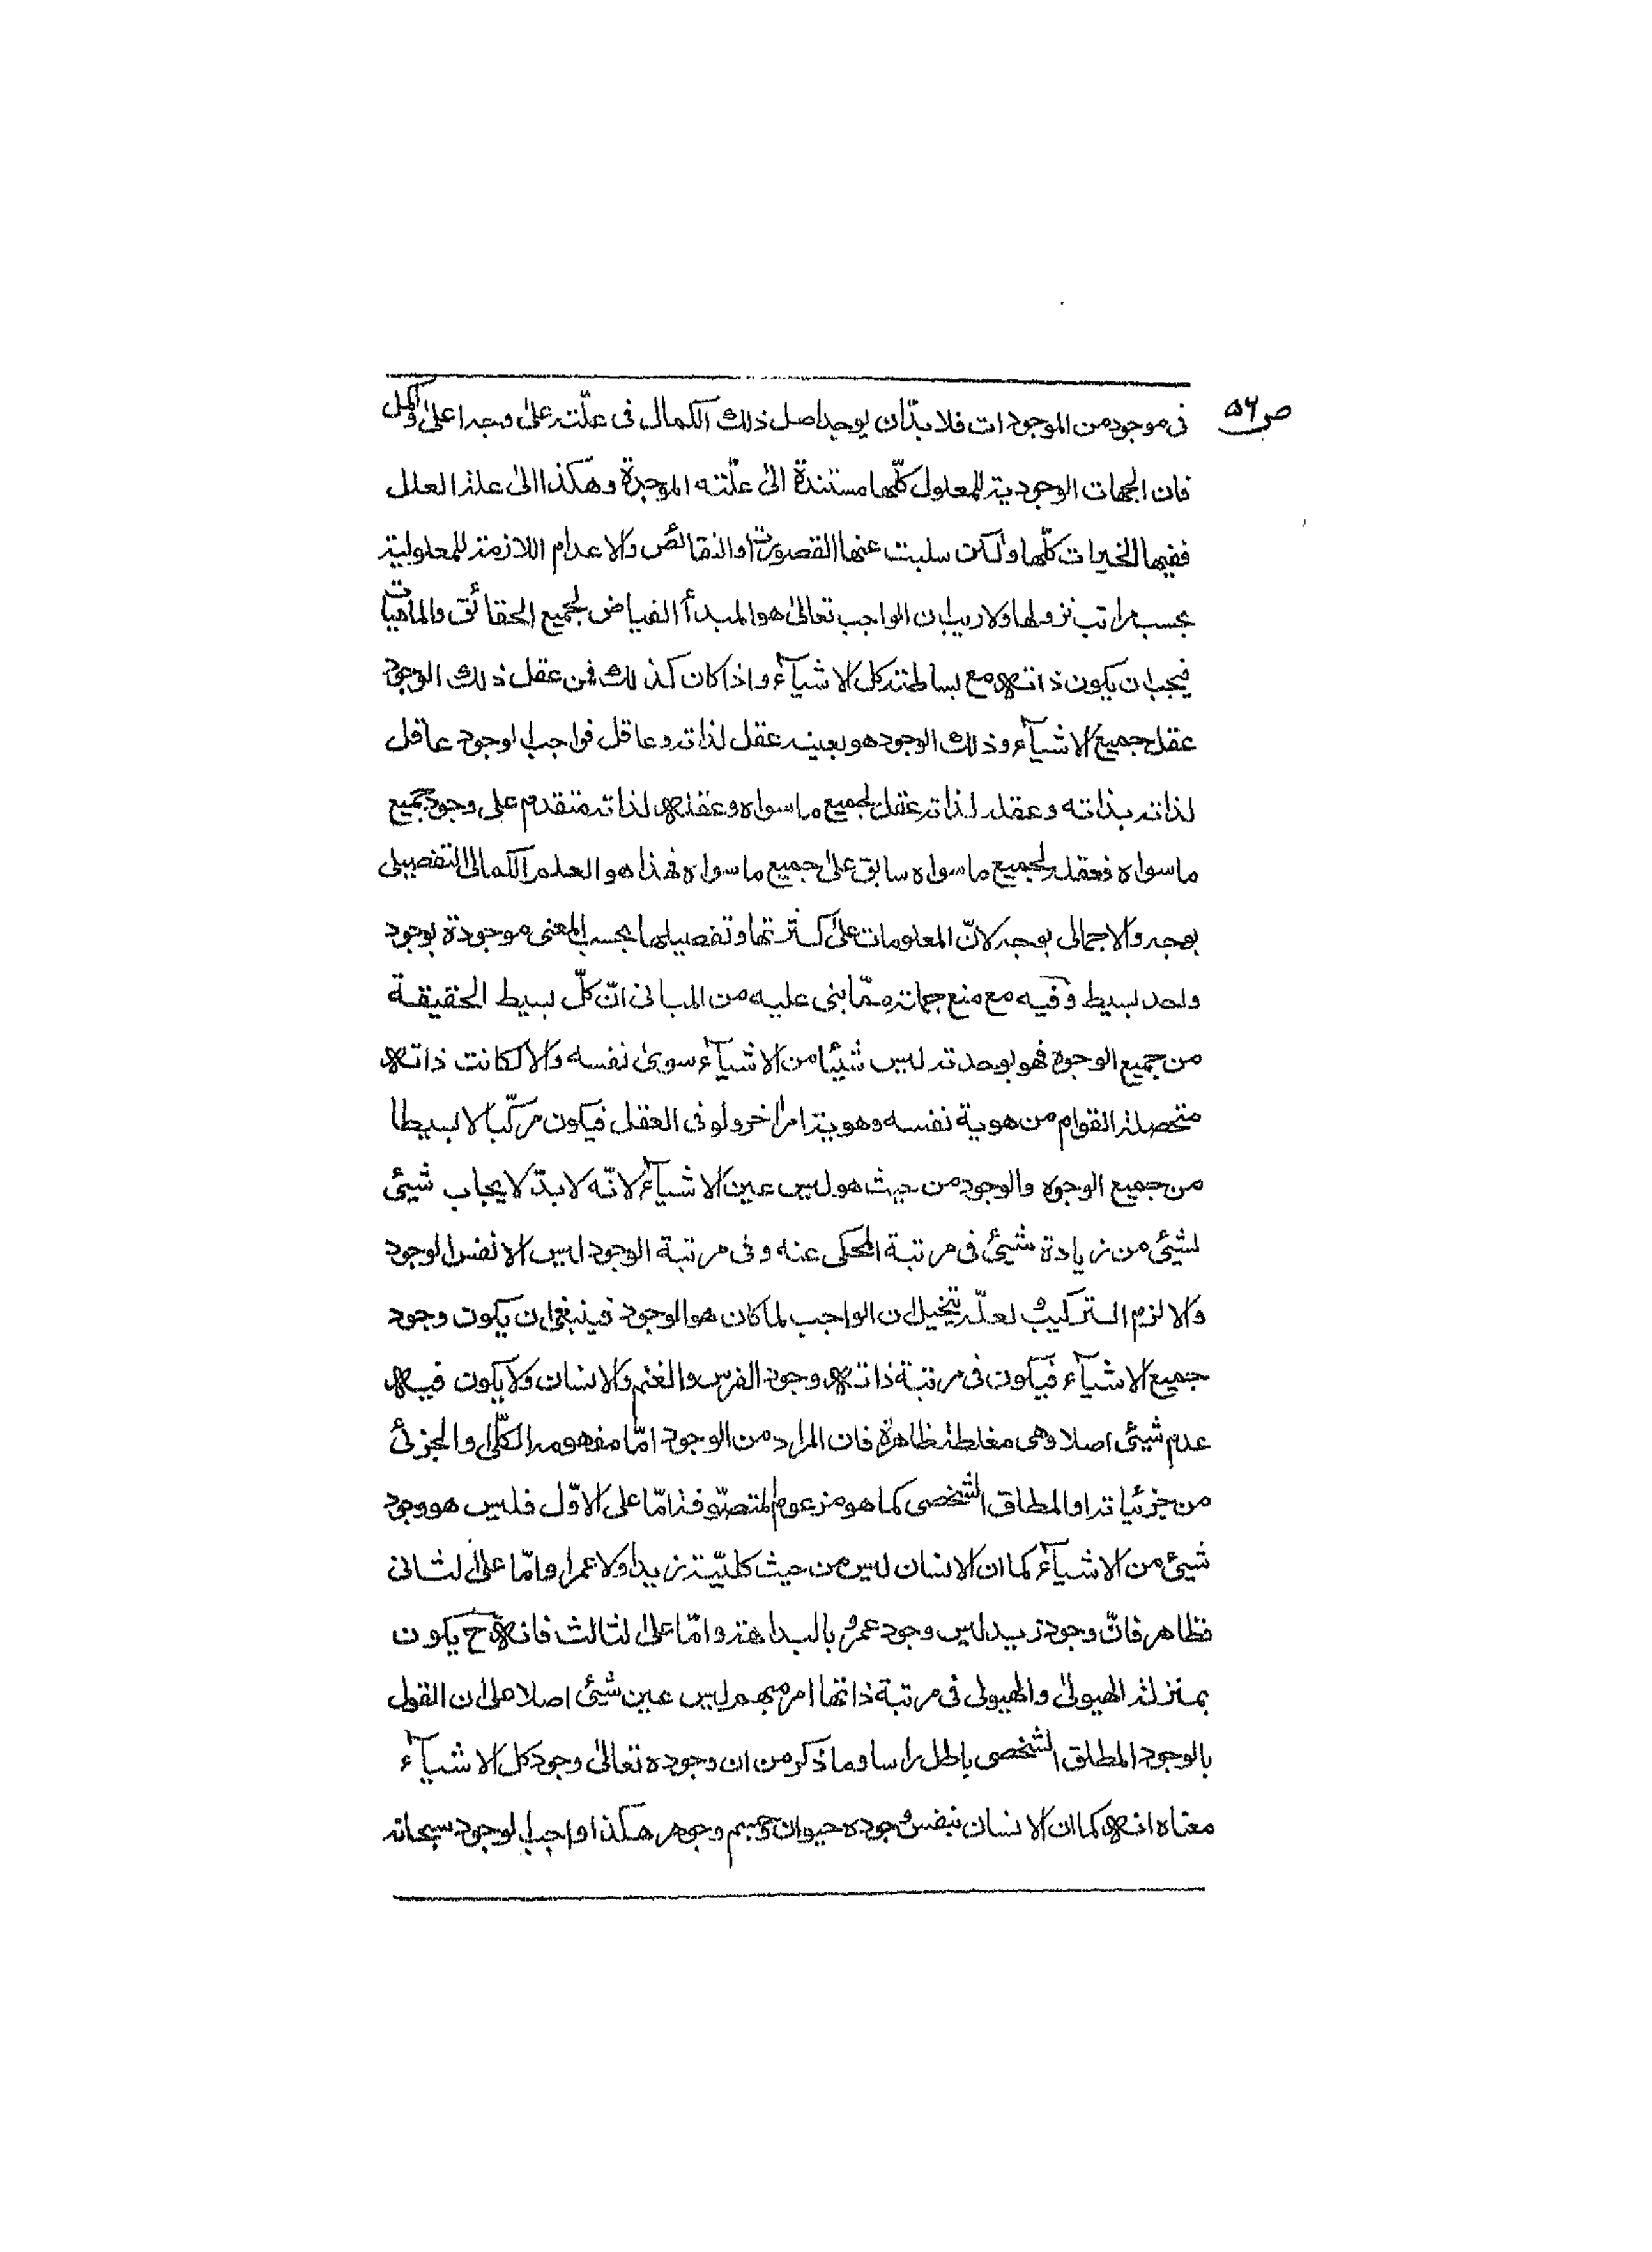 ص ۵۶
فى موجود من الموجودات فلا بدّ ان يوجد اصل ذلك الكمال فى علّته على وجه اعلى واكمل
فان الجهات الوجودية للمعلول كلّها مستندة الى علّته الموجدة وهكذا الى علة العلل
ففيها الخيرات كلّها ولكن سلبت عنها القصورات او النقائص والاعدام اللازمة للمعلولية
بحسب مراتب نزولها ولا ريب ان الواجب تعالى هو المبدأ الفياض لجميع الحقائق والماهيات
فيجب ان يكون ذاته مع بساطته كل الاشياء واذا كان كذلك فمن عقل ذلك الوجود
عقل جميع الاشياء وذلك الوجود هو بعينه عقل لذاته وعاقل فواجب الوجود عاقل
لذاته بذاته وعقله لذاته عقل لجميع ما سواه وعقله لذاته متقدم على وجود جميع
ما سواه فعقله لجميع ما سواه سابق على جميع ما سواه فهذا هو العلم الكمالى التفصيلى
بوجه والاجمالى بوجه لانّ المعلومات على كثرتها وتفصيلها بحسب المعنى موجودة بوجود
واحد بسيط وفيه مع منع جهاته ممّا بنى عليه من المبانى انّ كلّ بسيط الحقيقة
من جميع الوجوه فهو بوحدته ليس شيئا من الاشياء سوى نفسه والا لكانت ذاته
متحصلة القوام من هوية نفسه وهوية امر اخر ولو فى العقل فيكون مركّبا لا بسيطا
من جميع الوجوه والوجود من حيث هو ليس عين الاشياء لانّه لا بدّ لايجاب شيئى
لشيئى من زيادة شيئى فى مرتبة المحكى عنه وفى مرتبة الوجود ليس الا نفس الوجود
والا لزم التركيب ولعلّه يتخيل ان الواجب لما كان هو الوجود فينبغى ان يكون وجود
جميع الاشياء فيكون فى مرتبة ذاته وجود الفرس والغنم والانسان ولا يكون فيه
عدم شيئى اصلا وهى مغلطة ظاهرة فان المراد من الوجود امّا مفهومه الكلّى او الجزئى
من جزئياته او المطلق الشخصى كما هو مزعوم المتصوّفة امّا على الاوّل فليس هو وجود
شيئى من الاشياء كما ان الانسان ليس من حيث كليّته زيدا ولا عمرا وامّا على الثانى
فظاهر فانّ وجود زيد ليس وجود عمرو بالبداهة وامّا على الثالث فانه ح يكون
بمنزلة الهيولى والهيولى فى مرتبة ذاتها امر مبهم ليس عين شيئى اصلا على ان القول
بالوجود المطلق الشخصى باطل راسا وما ذكر من ان وجوده تعالى وجود كل الاشياء
معناه انه كما ان الانسان بنفس وجوده حيوان وجسم وجوهر هكذا واجب الوجود سبحانه